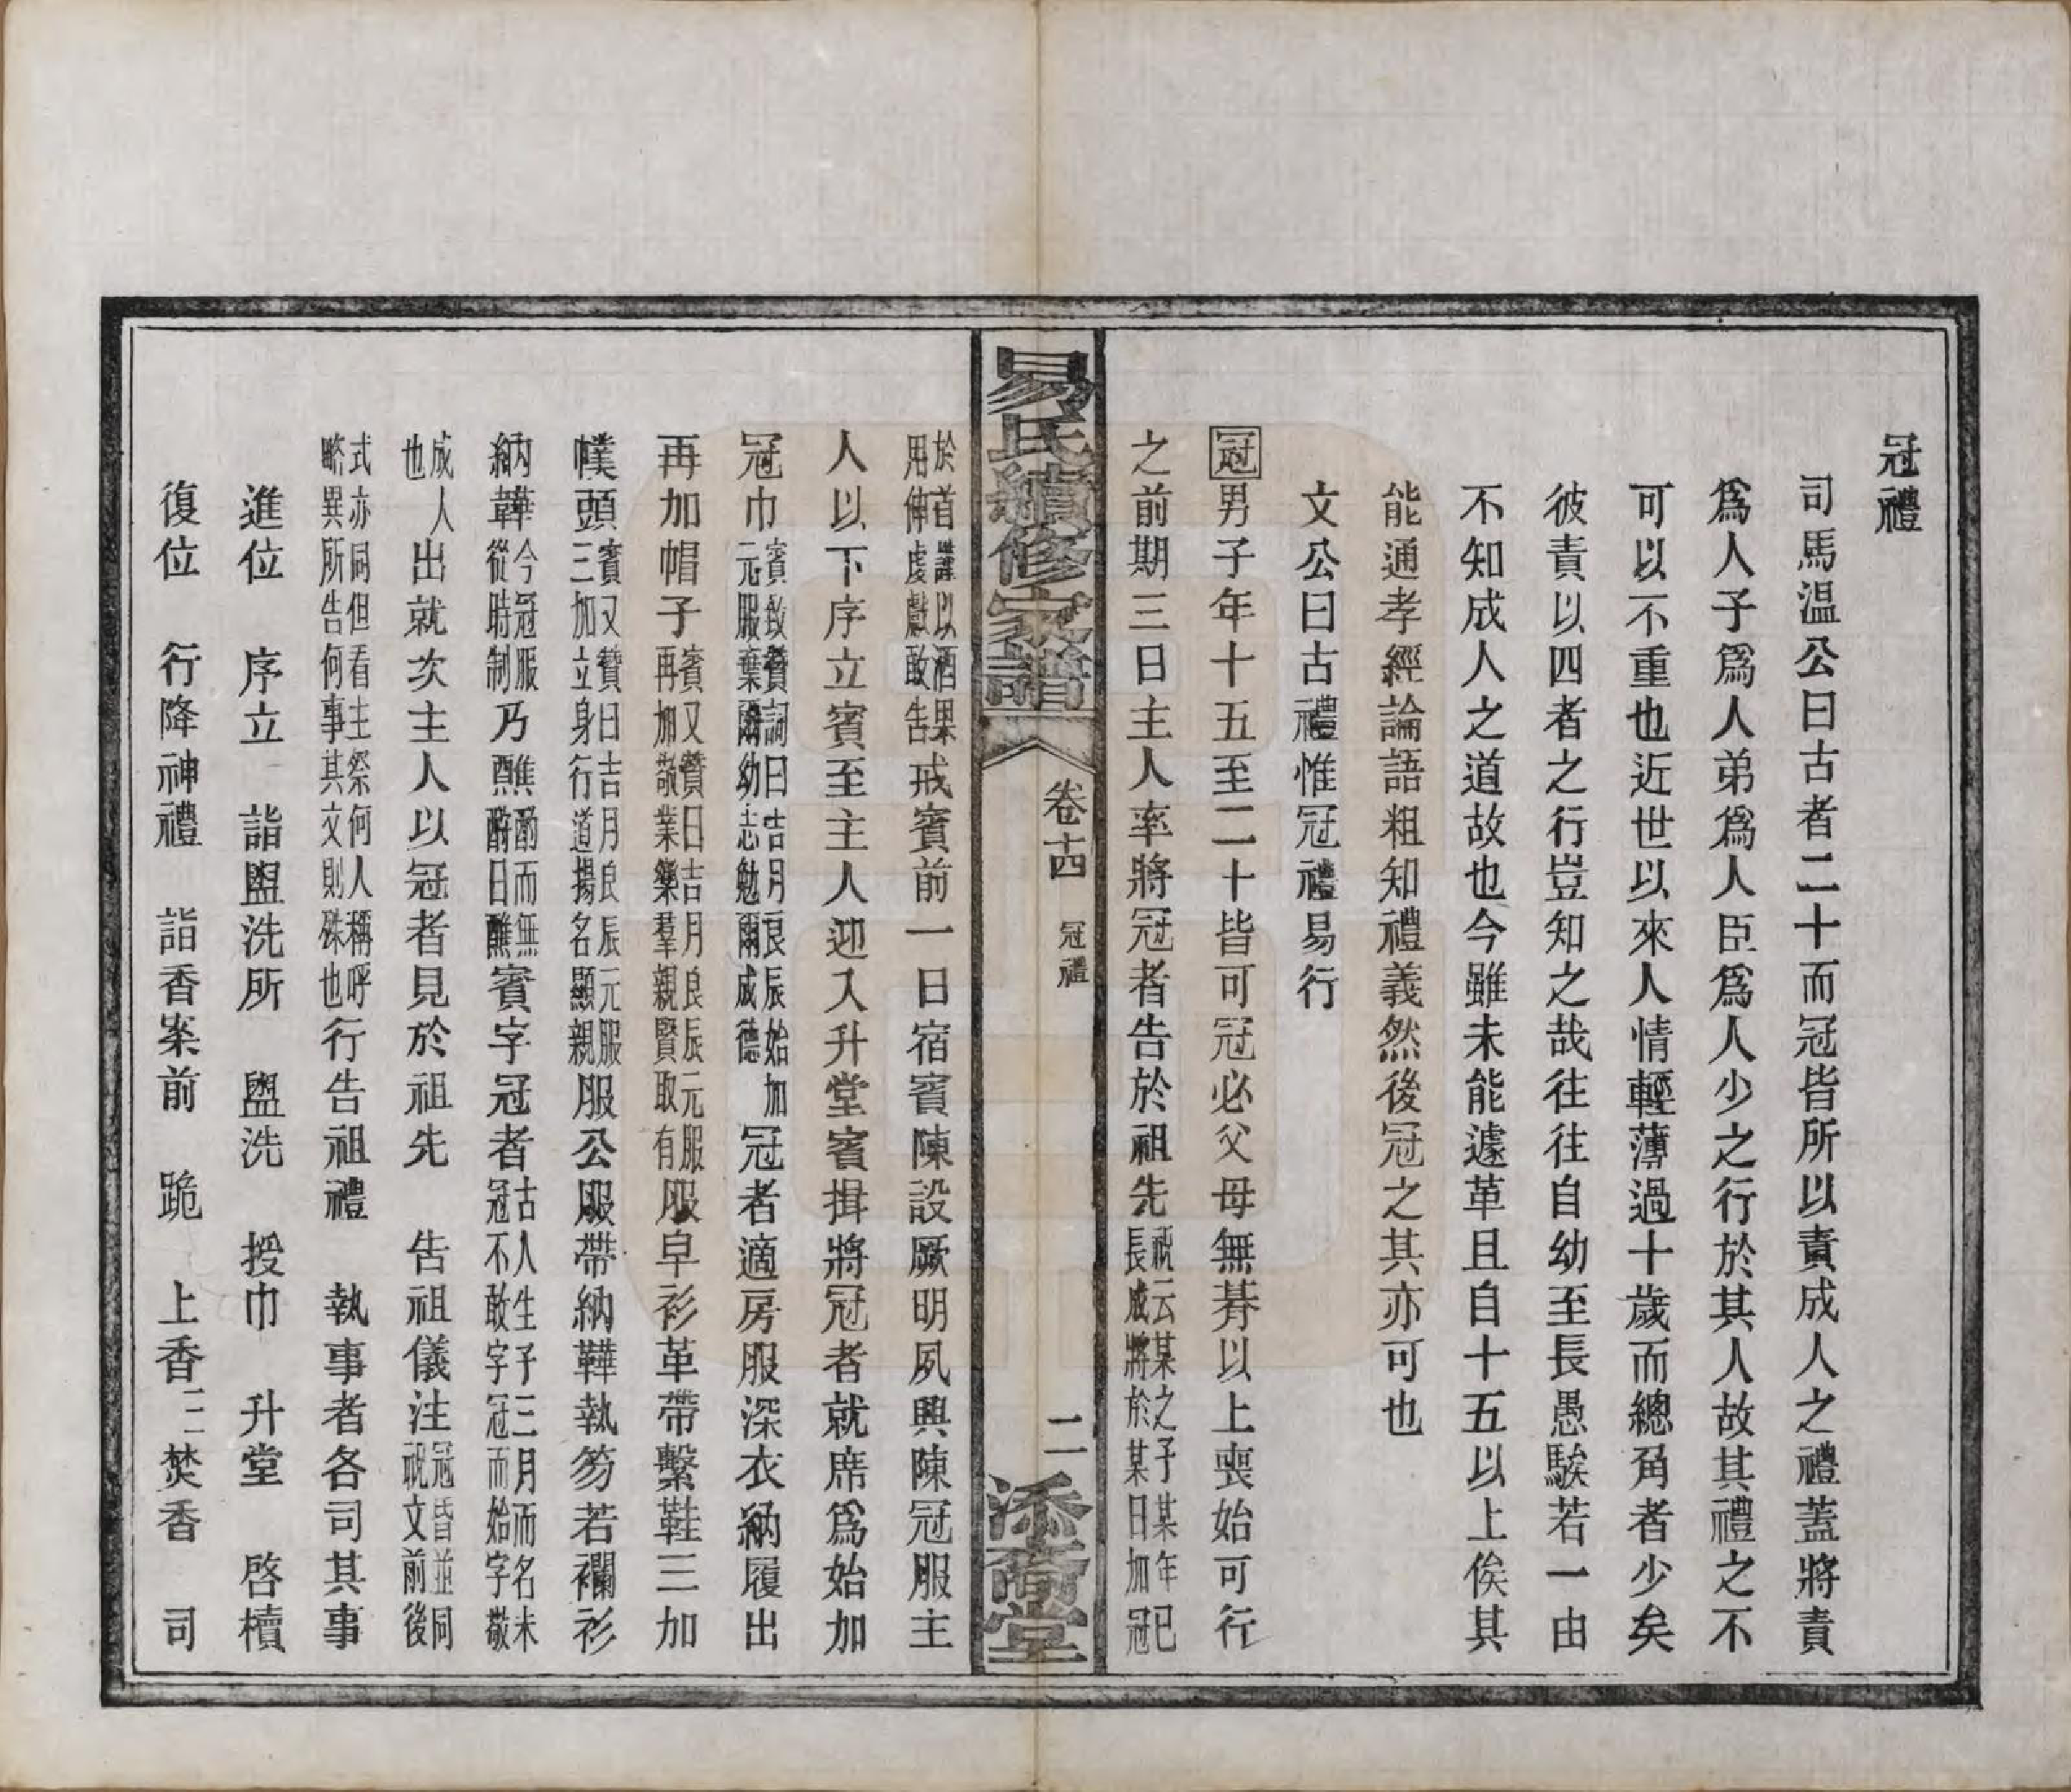 冠禮
司馬温公曰古者二十而冠皆所以責成人之禮蓋將責
爲人子爲人弟爲人臣爲人少之行於其人故其禮之不
可以不重也近世以來人情輕薄過十歲而總角者少矣
彼責以四者之行豈知之哉往往自幼至長愚騃若一由
不知成人之道故也今雖未能遽革且自十五以上俟其
能通孝經論語粗知禮義然後冠之其亦可也
文公曰古禮惟冠禮易行
冠男子年十五至二十皆可冠必父母無朞以上喪始可行
之前期三日主人率將冠者告於祖先祝云某之子某年已長成將於某日加冠
易氏續修家譜 卷十四 冠禮 二 添商堂
於首謹以酒果用伸虔獻敢告戒賓前一日宿賓陳設厥明夙興陳冠服主
人以下序立賓至主人迎入升堂賓揖將冠者就席爲始加
冠巾賓致贊詞曰吉月良辰始加元服棄爾幼志勉爾成德冠者適房服深衣納履出
再加帽子賓又贊曰吉月良辰元服再加敬業樂羣親賢取有服皁衫革帶繫鞋三加
幞頭賓又贊曰吉月良辰元服三加立身行道揚名顯親服公服帶納鞾執笏若襴衫
納鞾今冠服從時制乃醮酌而無酧曰醮賓字冠者古人生子三月而名未冠不敢字冠而始字敬
成人也出就次主人以冠者見於祖先 告祖儀注冠昏並同祝文前後
式亦同但看主祭何人稱呼略異所告何事其文則殊也行告祖禮 執事者各司其事
進位 序立 詣盥洗所 盥洗 授巾 升堂 啓櫝
復位 行降神禮 詣香案前 跪 上香三 焚香 司